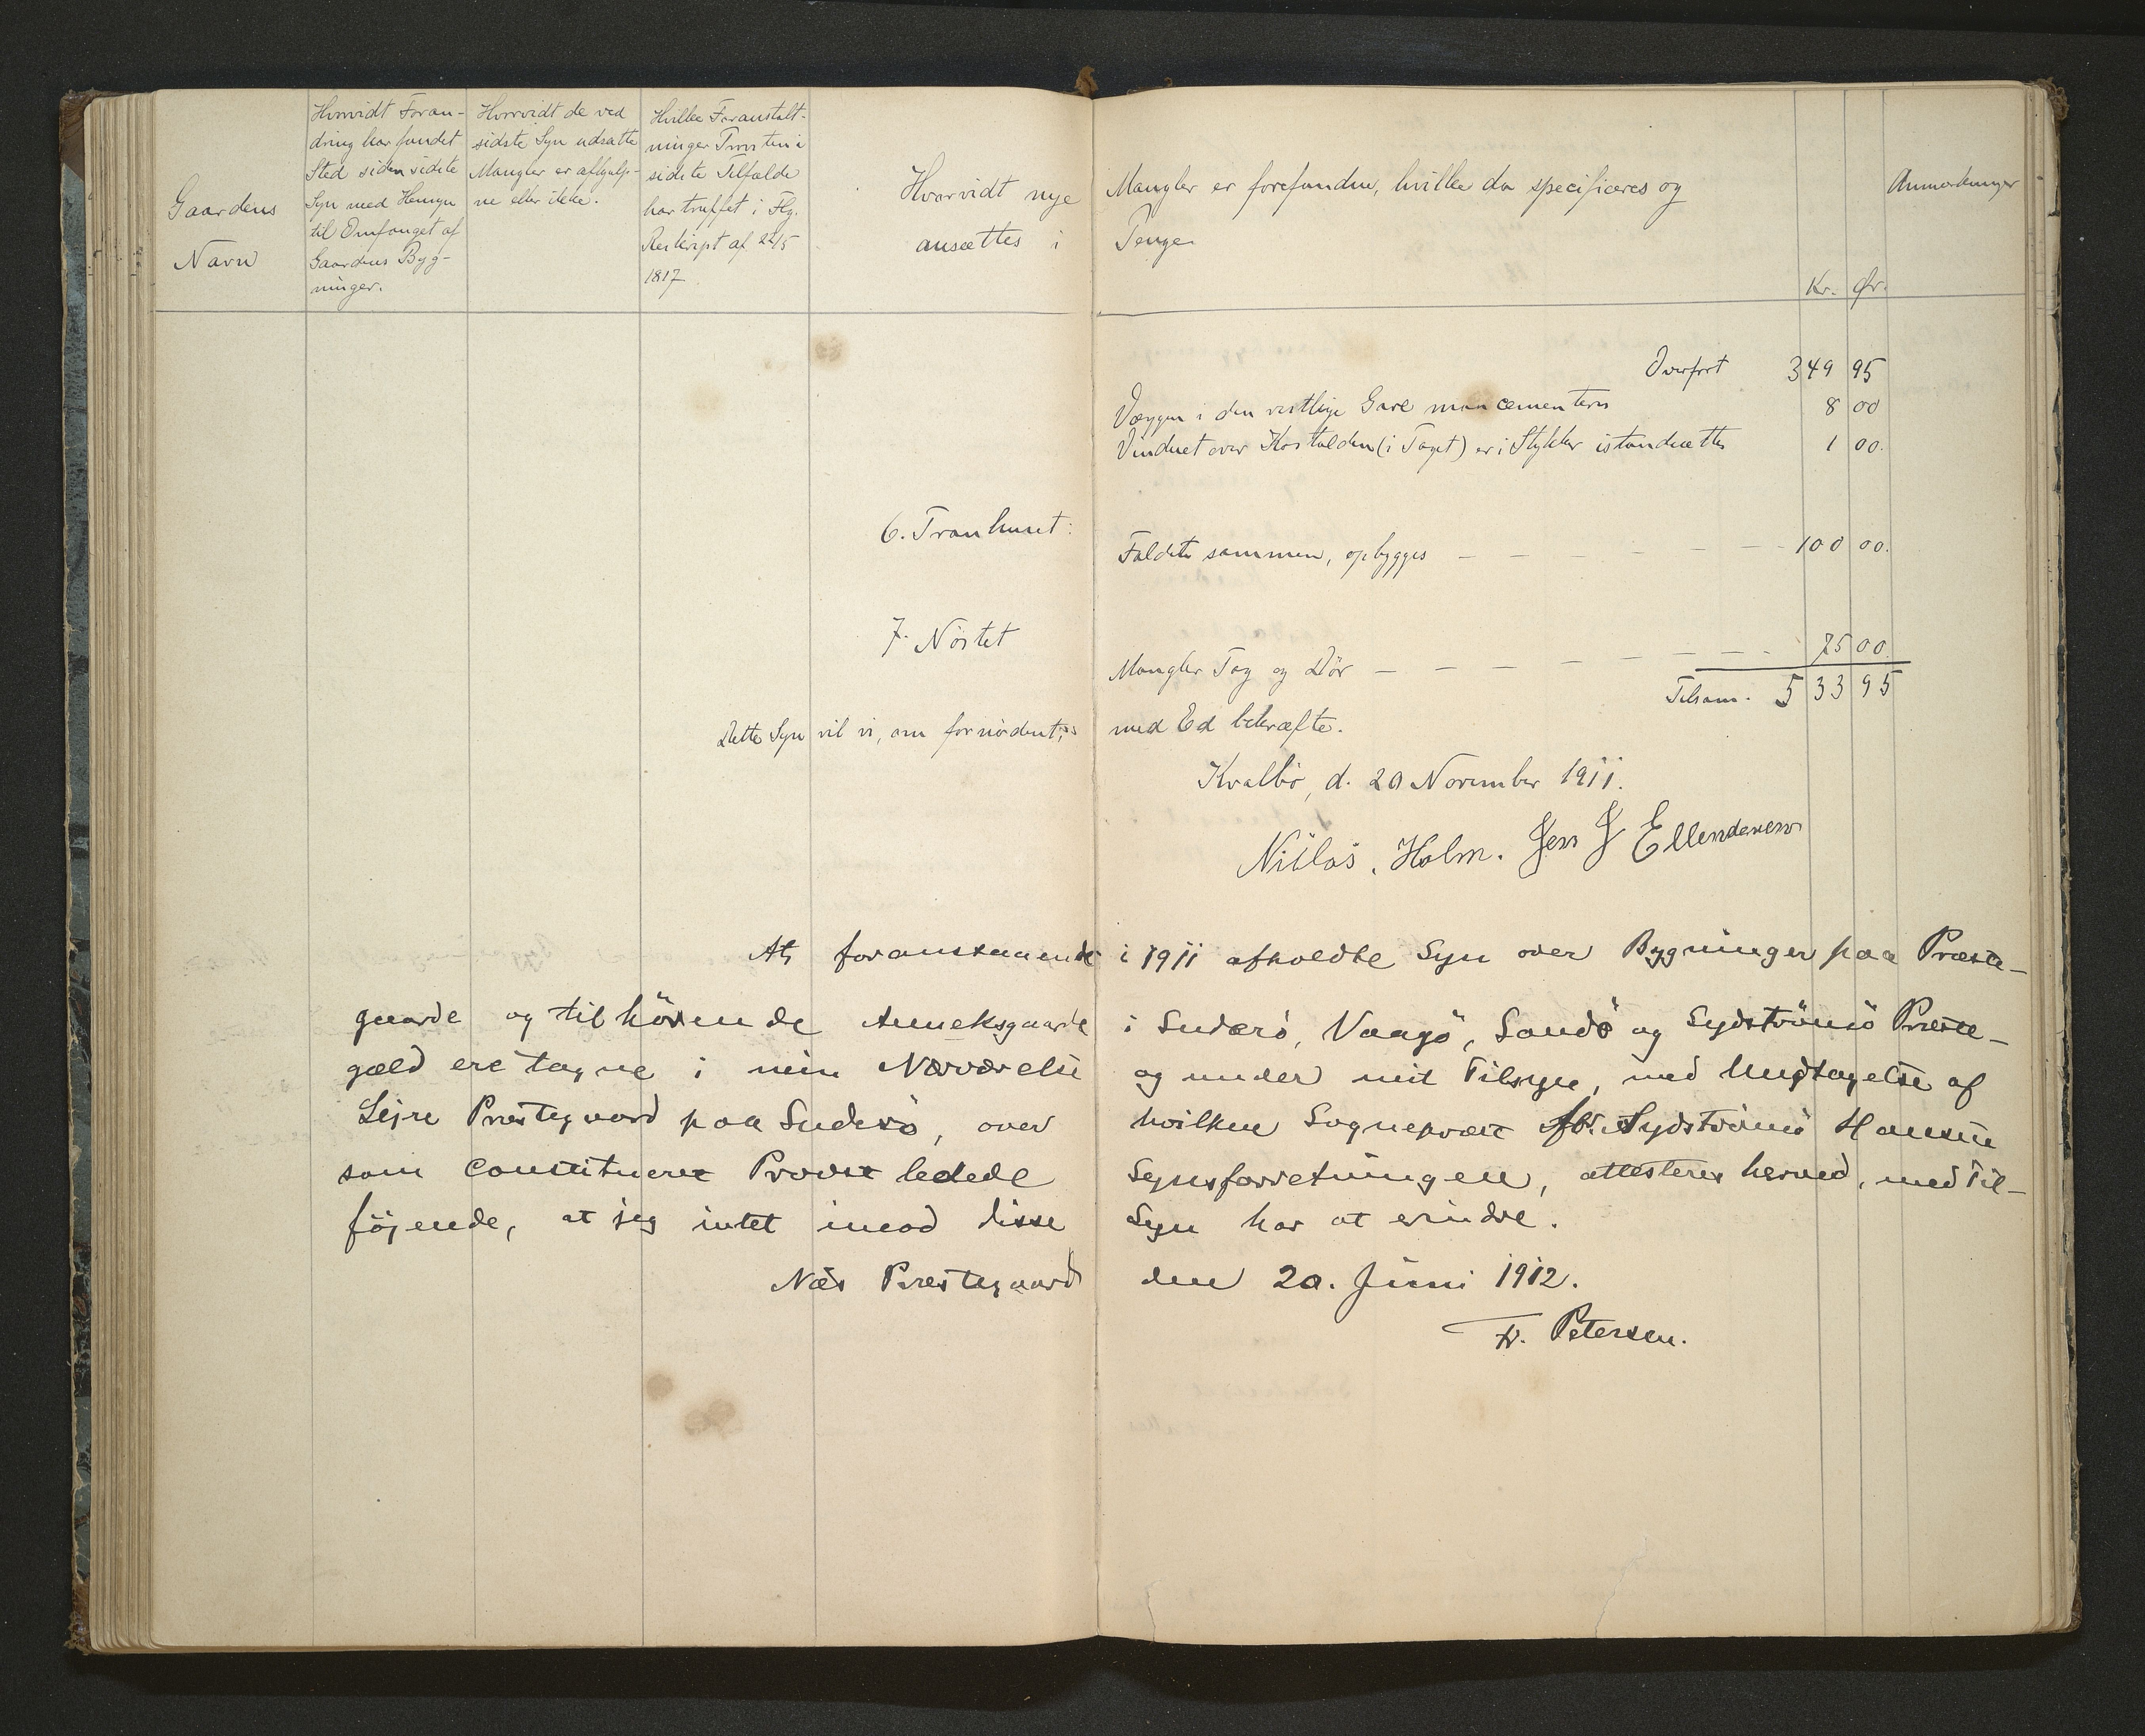 Gaardens
Navn
Hvorvidt Foran-
dring har fundet
Sted siden sidste
Syn med Hensyn
til Omfanget af
Gaardens Byg-
ninger.
Hvorvidt de ved
sidste Syn udsatte
Mangler er afhjulp-
ne eller ikke.
Hvilke Foranstalt-
ninger Provsten i
sidste Tilfælde
har truffet i Flg.
Reskript af 22/5
1817
Hvorvidt nye Mangler er forefundne, hvilke da specificeres og
ansættes i Penge
Kr. Ør.
Anmærkninger
Overført 349 95
Væggen i den vestlige Gavl maa cementeres 8 00
Vinduet over Kostalden (i Taget) er i Stykker istandsættes 1 00.
6. Tranhuset: Faldet sammen, opbygges — — — — 100 00.
7. Nöstet Mangler Tag og Dör — — — — — — — 75 00.
Tilsam. 533 95
Dette Syn vil vi, om fornödent, med Ed bekræfte.
Kvalbö, d. 20 November 1911.
Niclas. Holm. Jens J Ellendersen
At foranstaaende i 1911 afholdte Syn over Bygninger paa Præste-
gaarde og tilhörende Anneksgaarde i Suderö, Vaagö, Sandö og Sydströmö Præste-
gæld ere tagne i min Nærværelse og under mit Tilsyn, med Undtagelse af
Sejre Præstegaard paa Suderö, over hvilken Sognepræst for Sydströmö Hansen
som Constitueret Provst ledede Synsforretningen, attesteres herved, med Til-
föjende, at jeg intet imod disse Syn har at erindre.
Næs Præstegaard den 20. Juni 1912.
Fr. Petersen.